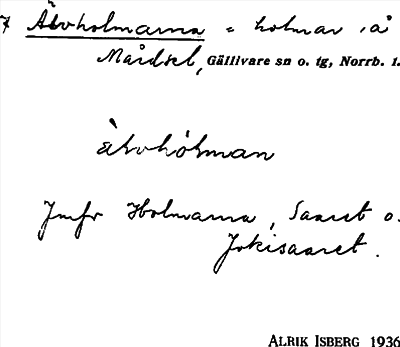 7 Älvholmarna = holmar i å
Mårdsel, Gällivare sn o. tg, Norrb. l.
älvhólman
Jmfr Holmarna, Saaret o.
Jokisaaret.
ALRIK ISBERG 1936